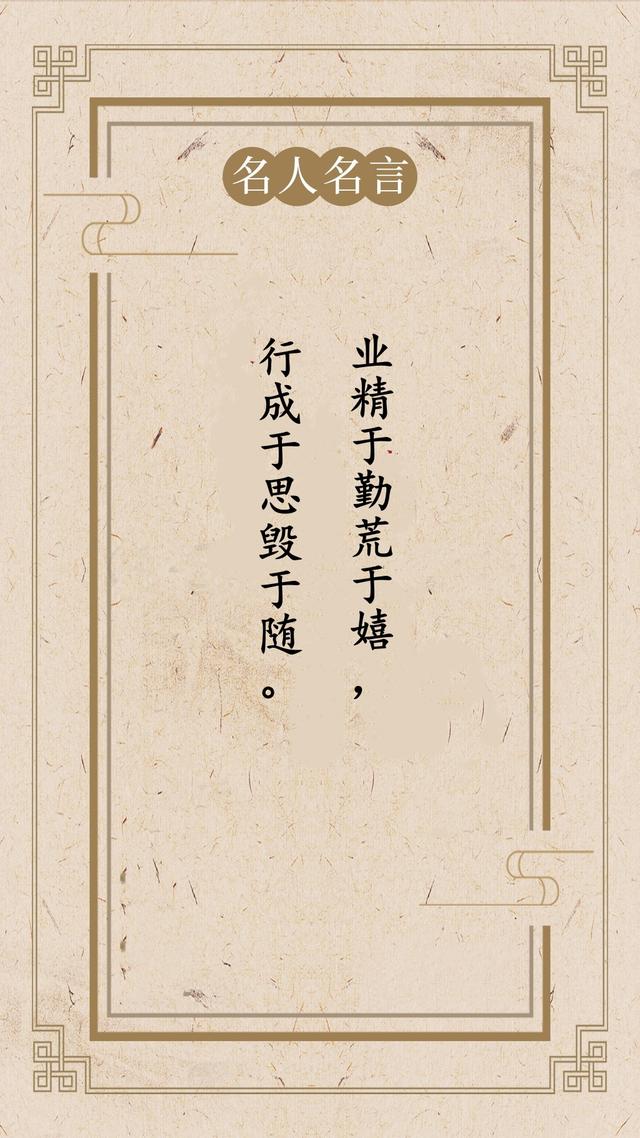 名人名言
业精于勤荒于嬉，
行成于思毁于随。